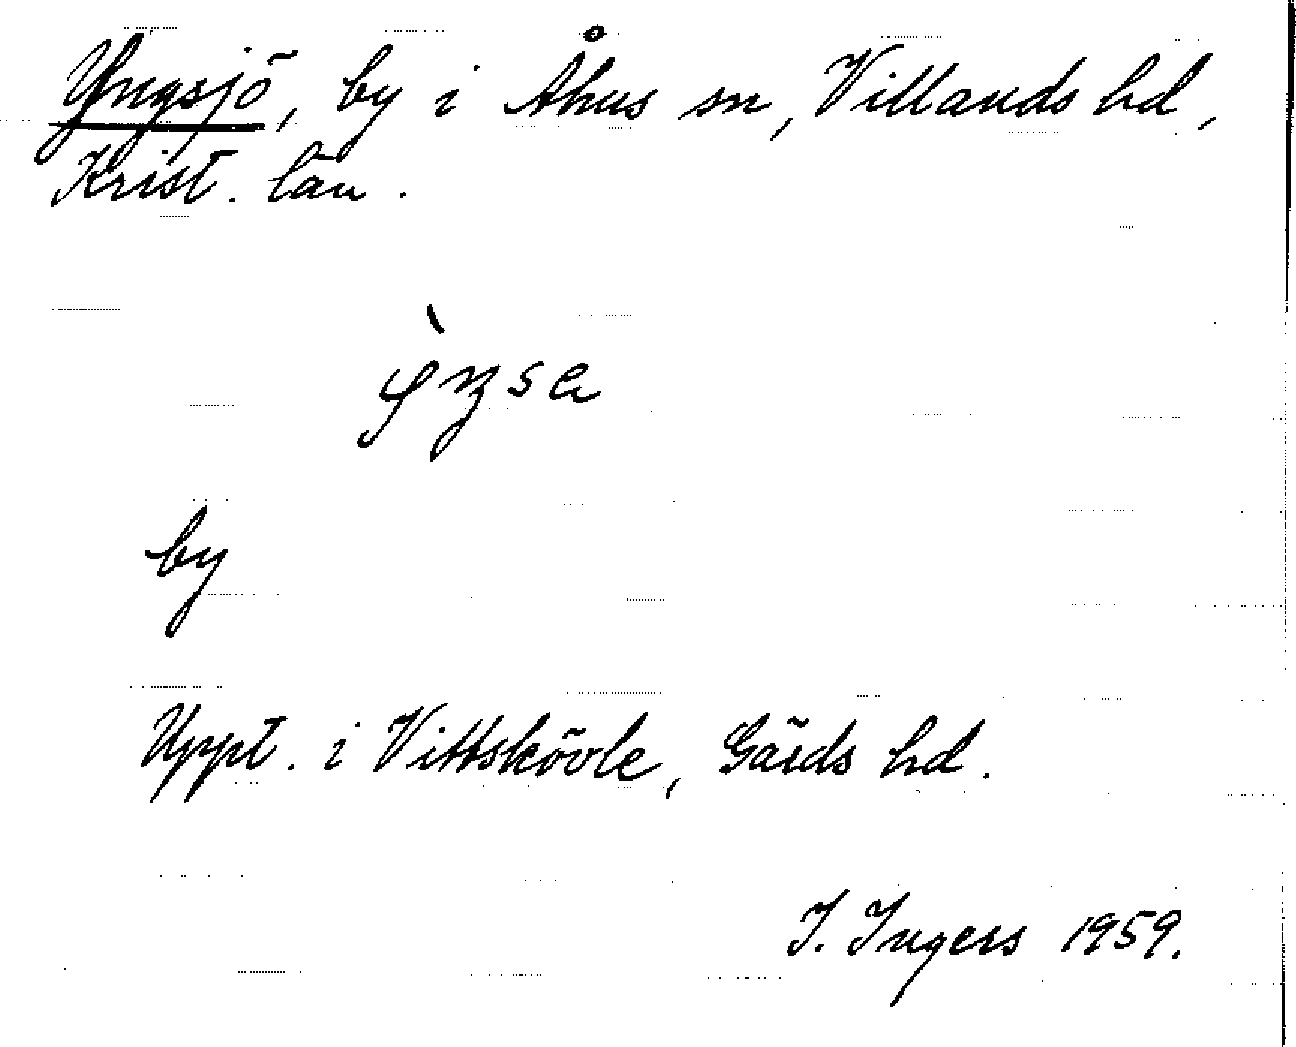 Yngsjö, by i Åhus sn, Villands hd,
Krist. län.
by
Uppt. i Vittskövle, Gärds hd.
I. Ingers 1959.